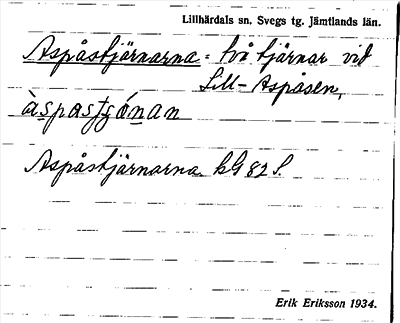 Lillhärdals sn. Svegs tg. Jämtlands län.
Aspåstjärnarna = två tjärnar vid
Lill-Aspåsen,
àspastjónan
Aspåstjärnarna kG 82 S.
Erik Eriksson 1934.